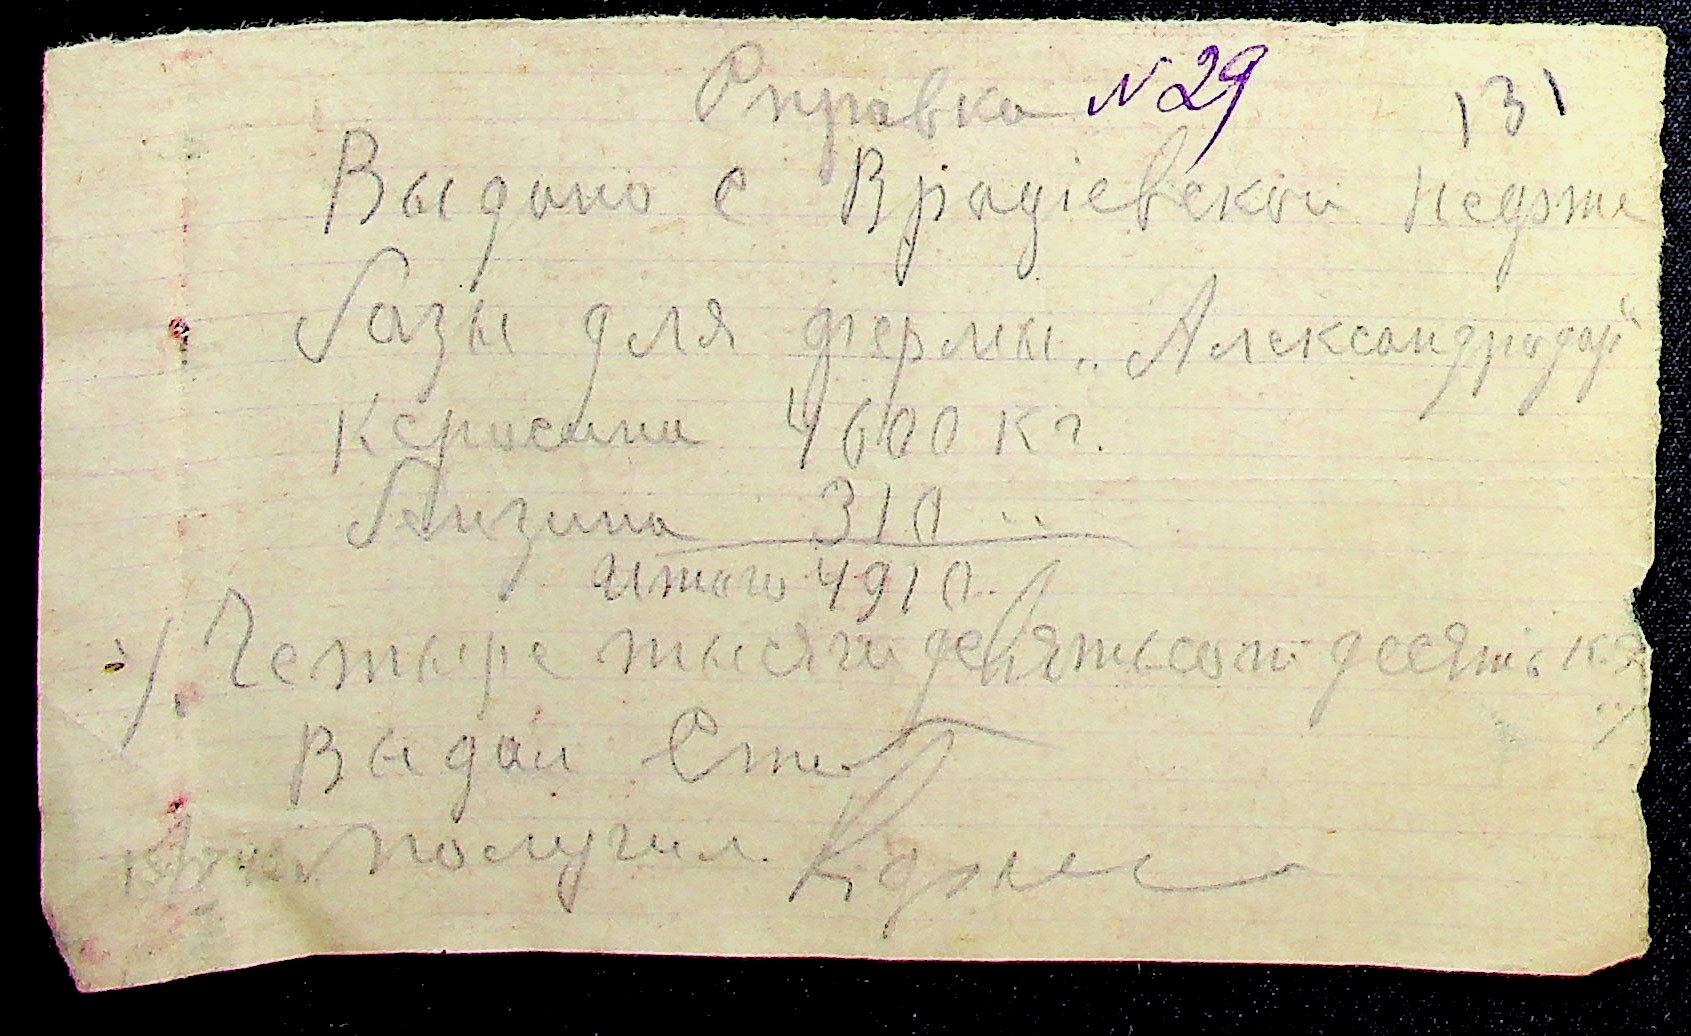 Справка N 29 131
Выдано с Врадіевской недрже
базы для фермы „Александродар“
Керосина 4600 кг.
Бензина 310 "
Итого 4910.
Четыре тысячи девятьсот десять кг
Выдал
получил